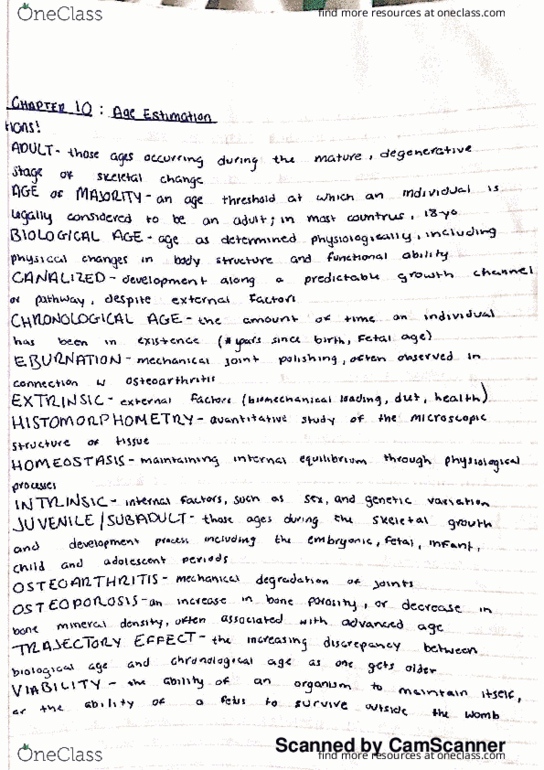 OneClass
find more resources at oneclass.com
CHAPTER 10 : Age Estimation
TIONS!
ADULT - those ages occurring during the mature, degenerative
stage of skeletal change
AGE OF MAJORITY - an age threshold at which an individual is
legally considered to be an adult; in most countrus, 18 yo
BIOLOGICAL AGE - age as determined physiologically, including
physical changes in body structure and functional ability
CANALIZED - development along a predictable growth channel
or pathway, despite external factors
CHRONOLOGICAL AGE - the amount of time an individual
has been in existence (#years since birth, fetal age)
EBURNATION - mechanical joint polishing, often observed in
connection w osteoarthritis
EXTRINSIC - external factors (biomechanical loading, diet, health)
HISTOMORPHOMETRY - quantitative study of the microscopic
structure of tissue
HOMEOSTASIS - maintaining internal equilibrium through physiological
processes
INTRINSIC - internal factors, such as sex, and genetic variation
JUVENILE/SUBADULT - those ages during the skeletal growth
and development process including the embryonic, fetal, infant,
child and adolescent periods
OSTEOARTHRITIS - mechanical degradation of joints
OSTEOPOROSIS - an increase in bone porosity, or decrease in
bone mineral density, often associated with advanced age
TRAJECTORY EFFECT - the increasing discrepancy between
biological age and chronological age as one gets older
VIABILITY - the ability of an organism to maintain itself,
or the ability of a fetus to survive outside the womb
Scanned by CamScanner
OneClass
find more resources at oneclass.com